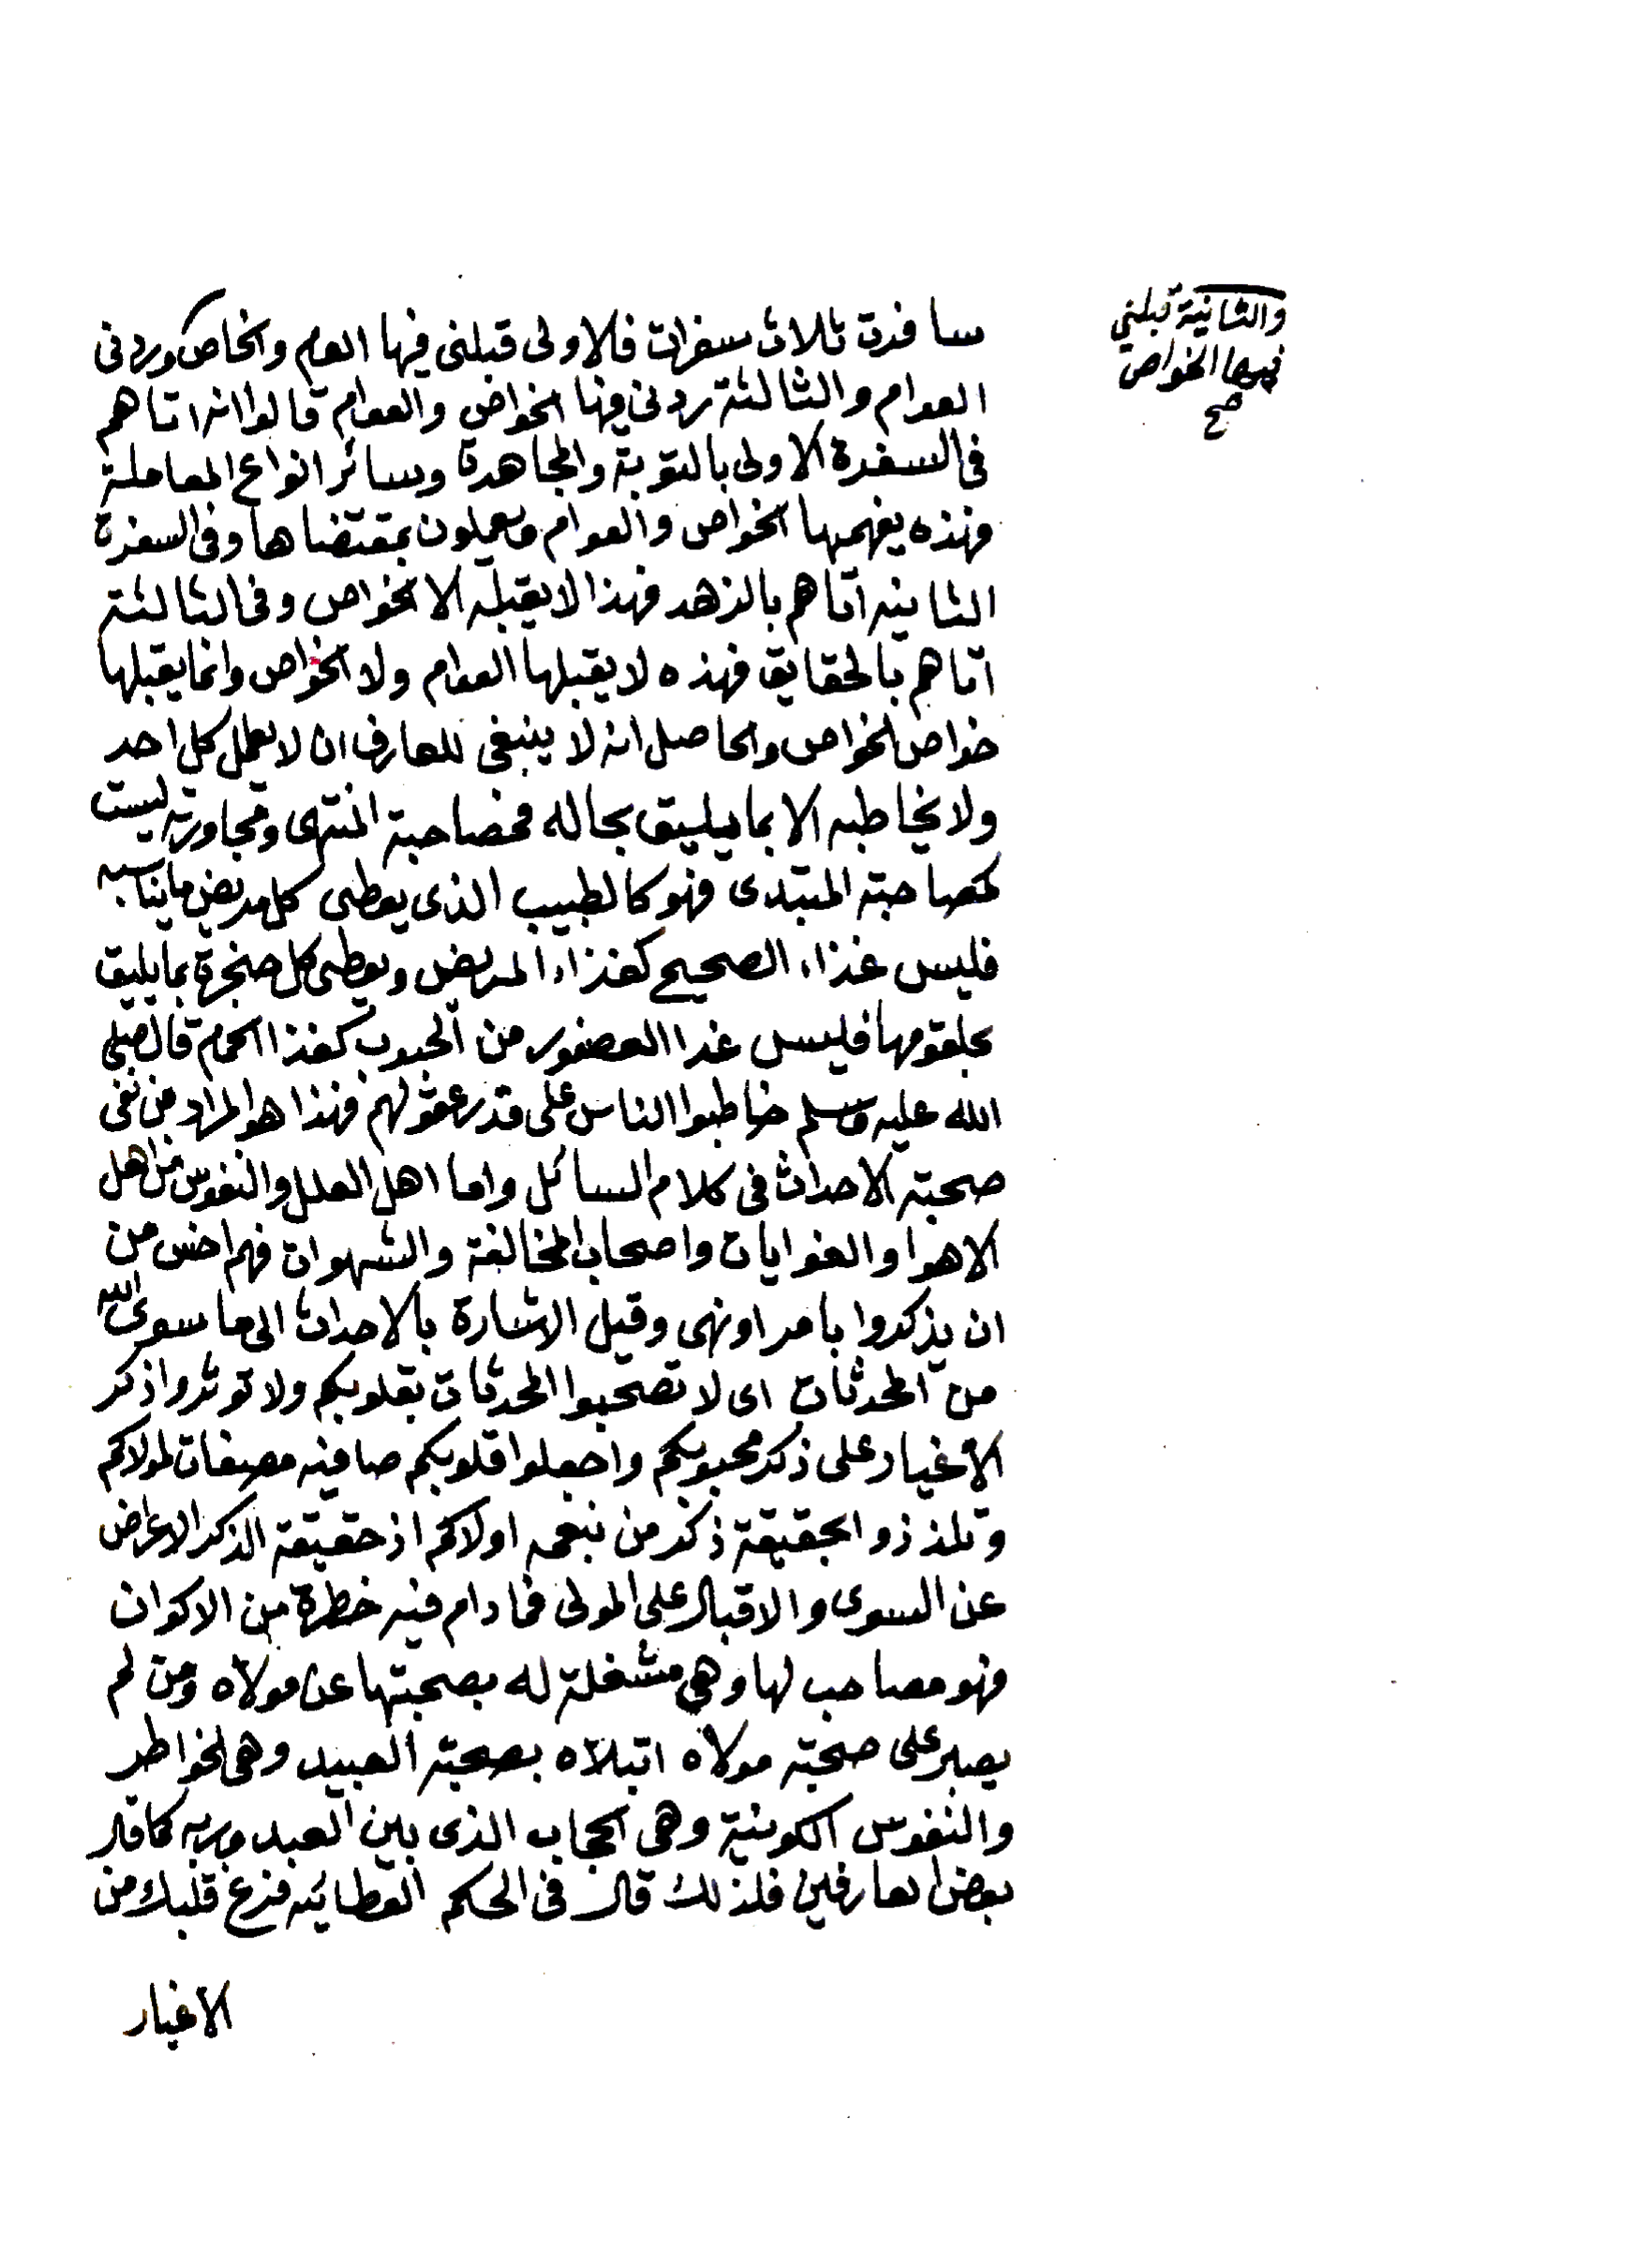 سافرت ثلاث سفرات فالاولى قبلنى فيها العام والخاص وردنى
والثانية قبلني
فيها الخواص
صح
العوام والثالثة ردنى فيها الخواص والعوام قالوا انه اتاهم
فى السفرة الاولى بالتوبة والمجاهدة وسائر انواع المعاملة
فهذه يفهمها الخواص والعوام ويعملون بمقتضاها وفى السفرة
الثانيه اتاهم بالزهد فهذا لا يقبله الا الخواص وفى الثالثة
اتاهم بالحقايق فهذه لا يقبلها العوام ولا الخواص وانما يقبلها
خواص الخواص والحاصل انه لا ينبغى للعارف ان لا يعمل كل احد
ولا يخاطبه الا بما يليق بحاله فمصاحبة المنتهى ومجاورته ليست
كمصاحبته المبتدى فهو كالطبيب الذى يعطى كل مريض ما يناسبه
فليس غذاء الصحيح كغذاء المريض ويعطى كل حنجرة بما يليق
بحلقومها فليس غذا العصفور من الحبوب كغذا الحمام قال صلى
الله عليه وسلم خاطبوا الناس على قدر عقولهم فهذا هو المراد من نفى
صحبة الاحداث فى كلام السائل واما اهل العلل والنفوس من اهل
الاهوا والغوايات واصحاب المخالفة والشهوات فهم اخس من
ان يذكروا بامر او نهى وقيل الاشارة بالاحداث الى ما سوى الله
من المحدثات اى لا تصحبوا المحدثات بقلوبكم ولا توثروا ذكر
الاغيار على ذكر محبوبكم واجعلوا قلوبكم صافيه مصفات لمولاكم
وتلذذوا بحقيقة ذكر من بنعمه اولاكم اذ حقيقة الذكر الاعراض
عن السوى والاقبال على المولى فما دام فيه خطرة من الاكوان
فهو مصاحب لها وهى مشغلة له بصحبتها عن مولاه ومن لم
يصبر على صحبة مولاه ابتلاه بصحبة العبيد وهى الخواطر
والنفوس الكونية وهى الحجاب الذى بين العبد وربه كما قال
بعض العارفين فلذلك قال فى الحكم العطائيه فرغ قلبك من
الاغيار